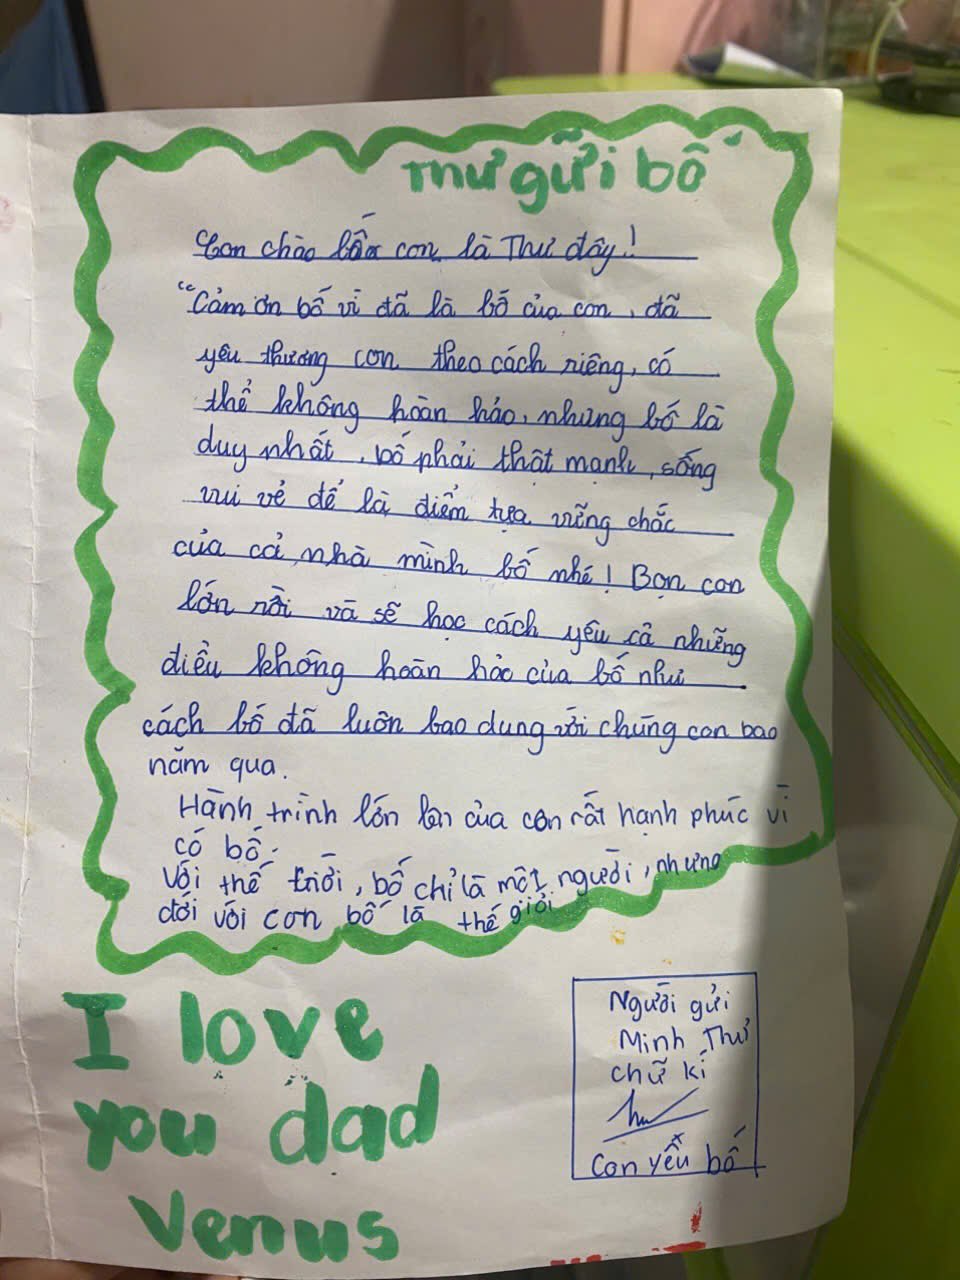 Thư gửi bố
Con chào bố con là Thư đây!
"Cảm ơn bố vì đã là bố của con, đã
yêu thương con theo cách riêng, có
thể không hoàn hảo, nhưng bố là
duy nhất, bố phải thật mạnh, sống
vui vẻ để là điểm tựa vững chắc
của cả nhà mình bố nhé! Bọn con
lớn rồi và sẽ học cách yêu cả những
điều không hoàn hảo của bố như
cách bố đã luôn bao dung với chúng con bao
năm qua.
Hành trình lớn lên của con rất hạnh phúc vì
có bố.
Với thế giời, bố chỉ là một người, nhưng
đối với con bố là thế giới
I love
you dad
Venus
Người gửi
Minh Thư
chữ kí
Thư
Con yêu bố